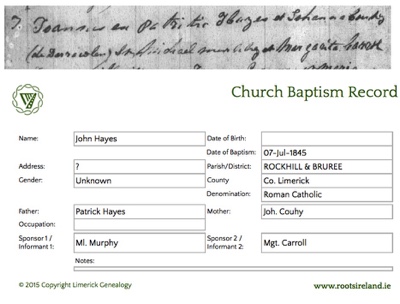 7. Joannes ex Patritio Hayes et Johanna
Michael Murphy et Margarita
Church Baptism Record
Name: John Hayes Date of Birth:
Date of Baptism: 07-Jul-1845
Address: ? Parish/District: ROCKHILL & BRUREE
Gender: Unknown County Co. Limerick
Denomination: Roman Catholic
Father: Patrick Hayes Mother: Joh. Couhy
Occupation:
Sponsor 1 / Informant 1: Ml. Murphy Sponsor 2 / Informant 2: Mgt. Carroll
Notes:
© 2015 Copyright Limerick Genealogy www.rootsireland.ie